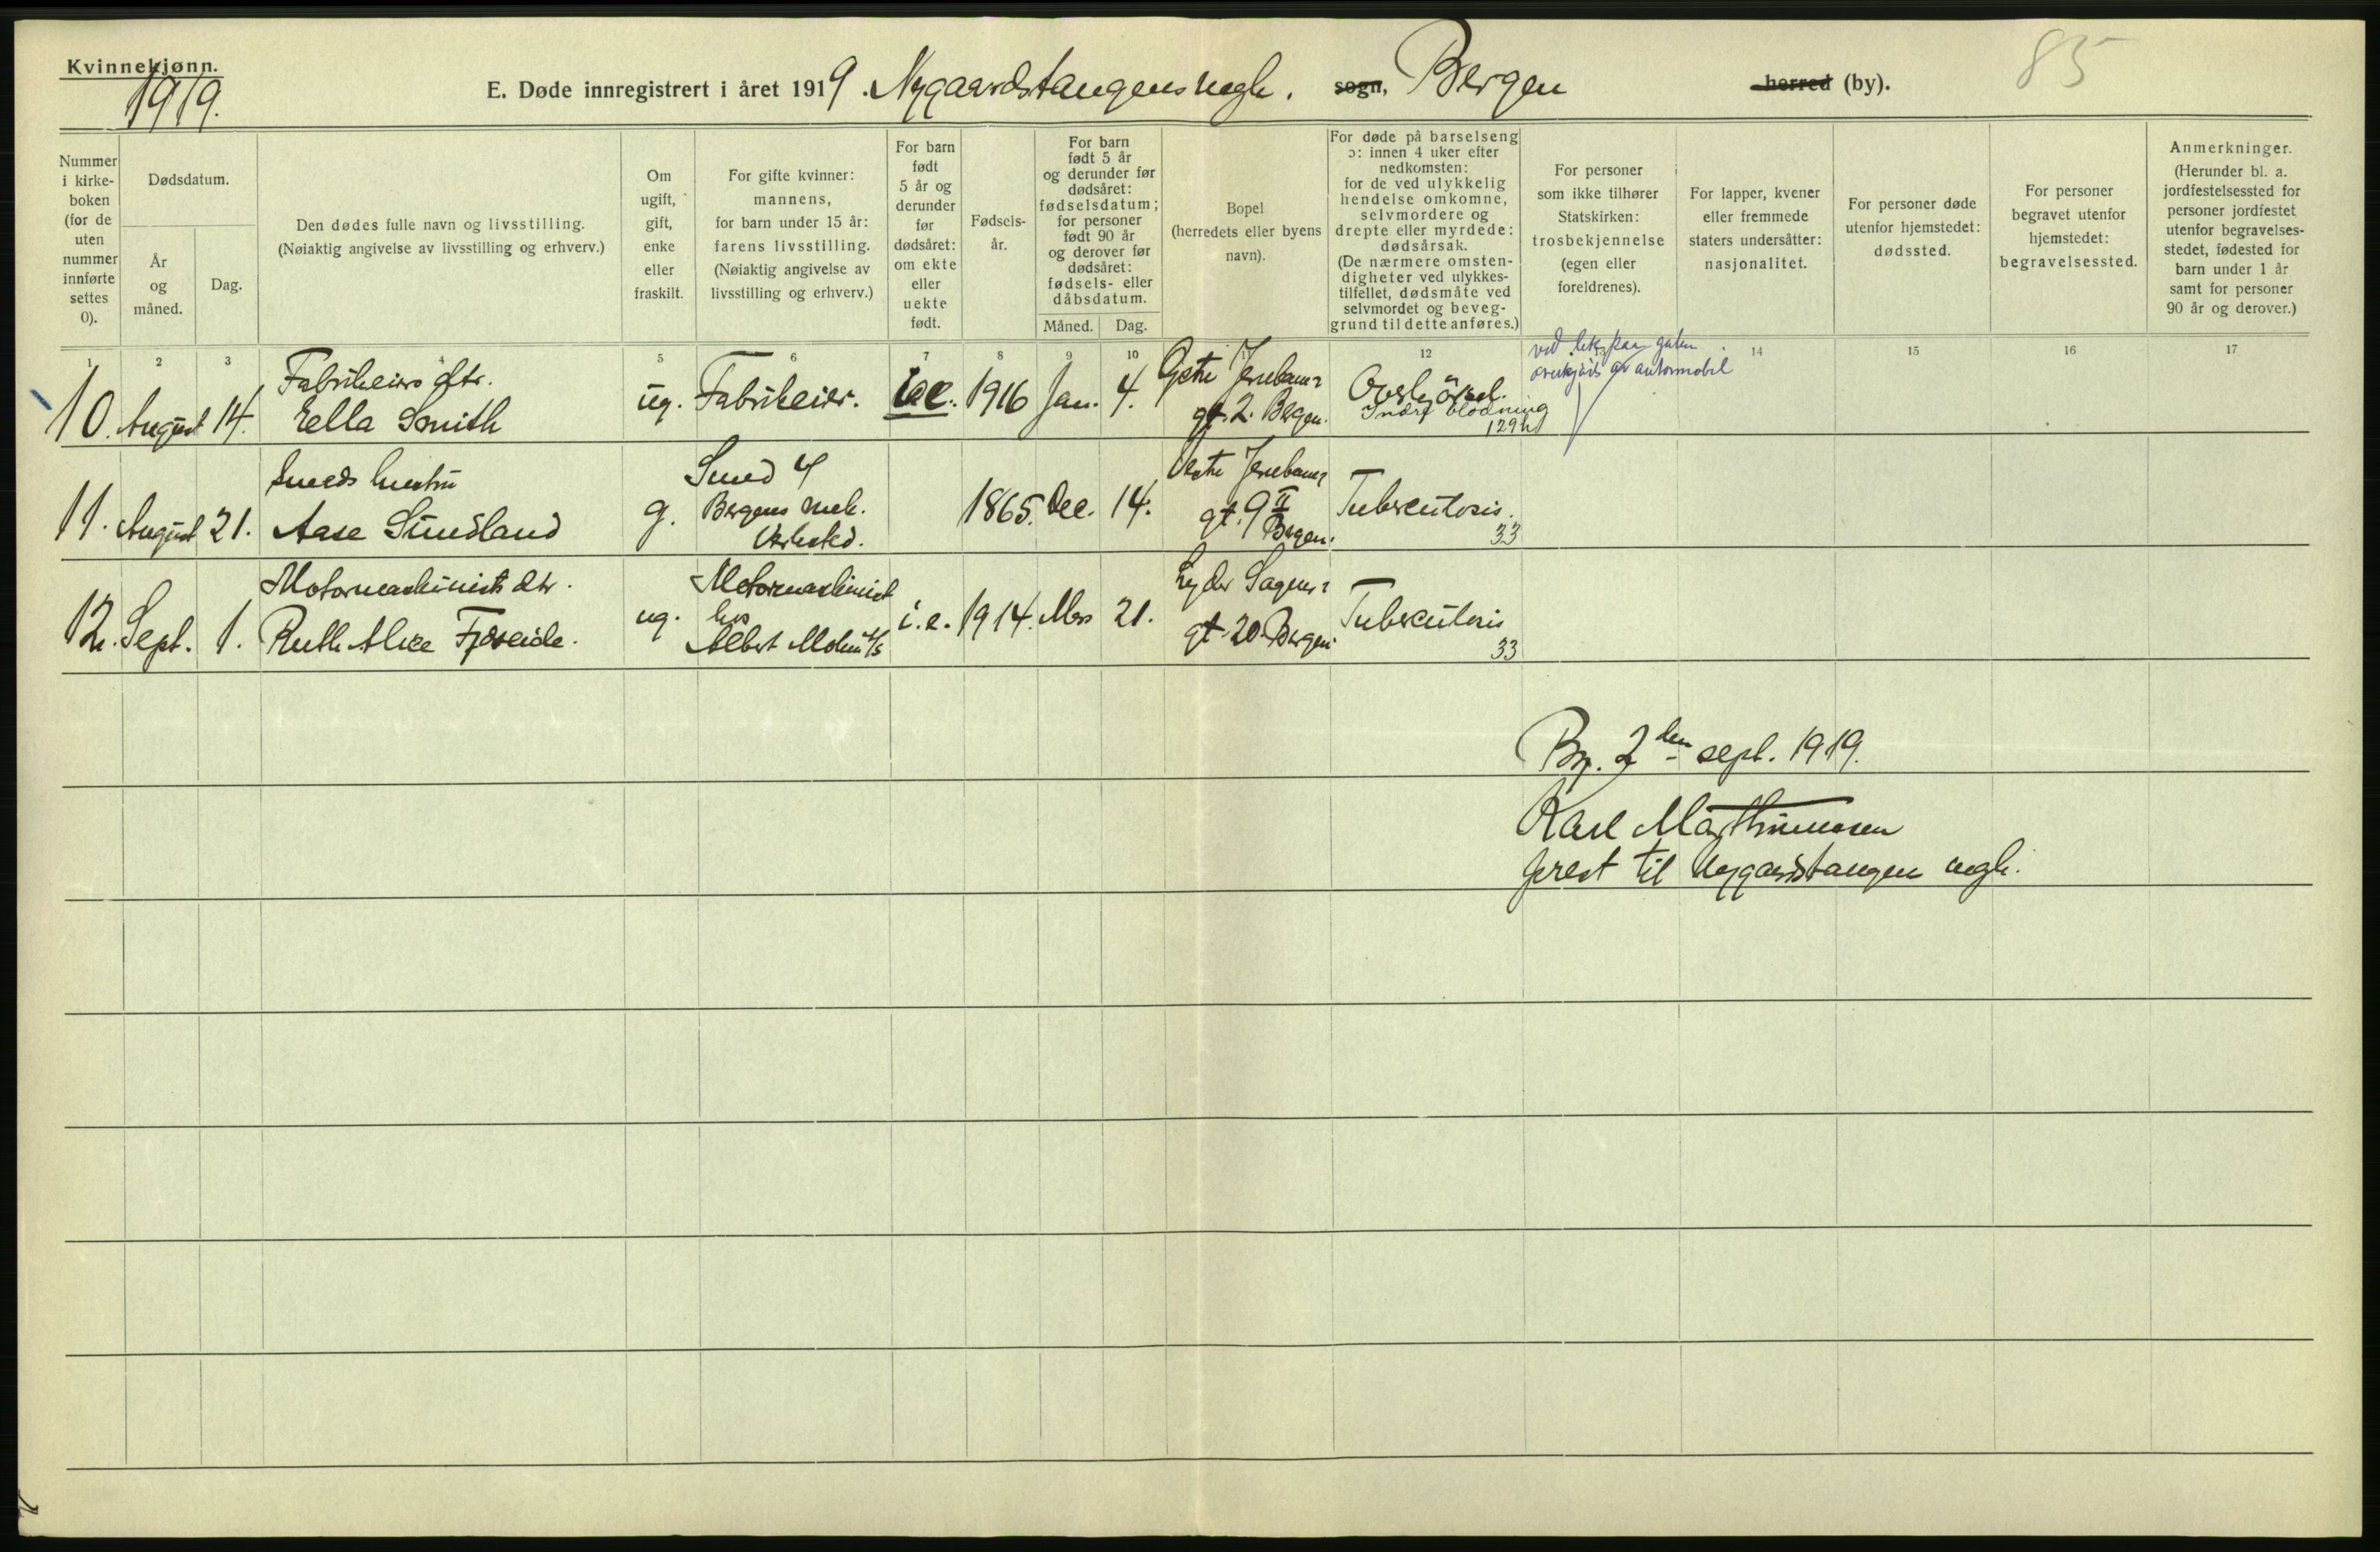 Kvinnekjønn.
1919.
E. Døde innregistrert i året 1919. Nygaardstangens mgh. sogn, Bergen herred (by).
85
Nummer
i kirke-
boken
(for de
uten
nummer
innførte
settes
0).
Dødsdatum.
År
og
måned.
Dag.
Den dødes fulle navn og livsstilling.
(Nøiaktig angivelse av livsstilling og erhverv.)
Om
ugift,
gift,
enke
eller
fraskilt.
For gifte kvinner:
mannens,
for barn under 15 år:
farens livsstilling.
(Nøiaktig angivelse av
livsstilling og erhverv.)
For barn
født
5 år og
derunder
før
dødsåret:
om ekte
eller
uekte
født.
Fødsels-
år.
For barn
født 5 år
og derunder før
dødsåret:
fødselsdatum;
for personer
født 90 år
og derover før
dødsåret:
fødsels- eller
dåbsdatum.
Måned. Dag.
Bopel
(herredets eller byens
navn).
For døde på barselseng
ɔ: innen 4 uker efter
nedkomsten:
for de ved ulykkelig
hendelse omkomne,
selvmordere og
drepte eller myrdede:
dødsårsak.
(De nærmere omsten-
digheter ved ulykkes-
tilfellet, dødsmåte ved
selvmordet og beveg-
grund til dette anføres.)
For personer
som ikke tilhører
Statskirken:
trosbekjennelse
(egen eller
foreldrenes).
For lapper, kvener
eller fremmede
staters undersåtter:
nasjonalitet.
For personer døde
utenfor hjemstedet:
dødssted.
For personer
begravet utenfor
hjemstedet:
begravelsessted.
Anmerkninger.
(Herunder bl. a.
jordfestelsessted for
personer jordfestet
utenfor begravelses-
stedet, fødested for
barn under 1 år
samt for personer
90 år og derover.)
1 2 3 4 5 6 7 8 9 10 11 12 13 14 15 16 17
ved lek paa gaten
overkjørt av automobil
Fabrikeiers dtr.
10. August 14. Ella Smith ug. Fabrikeier. i.e. 1916 Jan. 4.
Østre Jernbane-
gt. 2. Bergen.
Overkjørsel.
Indre blödning
129h
Smeds hustru
11. August 21. Aase Sundland g.
Smed v/
Bergens mek.
Verksted.
1865. Dec. 14.
Vestre Jernbane-
gt. 9 II
Bergen.
Tuberkulosis.
33
Motormaskinists dtr.
12. Sept. 1. Ruth Alice Fjøseide. ug.
Motormaskinist
hos
Albert Mohn A/S
i.e. 1914. Mars 21.
Lyder Sagens-
gt. 20. Bergen.
Tuberkulosis
33
Bg. 2den sept. 1919.
Karl Marthinussen
prest til Nygaardstangen mgh.